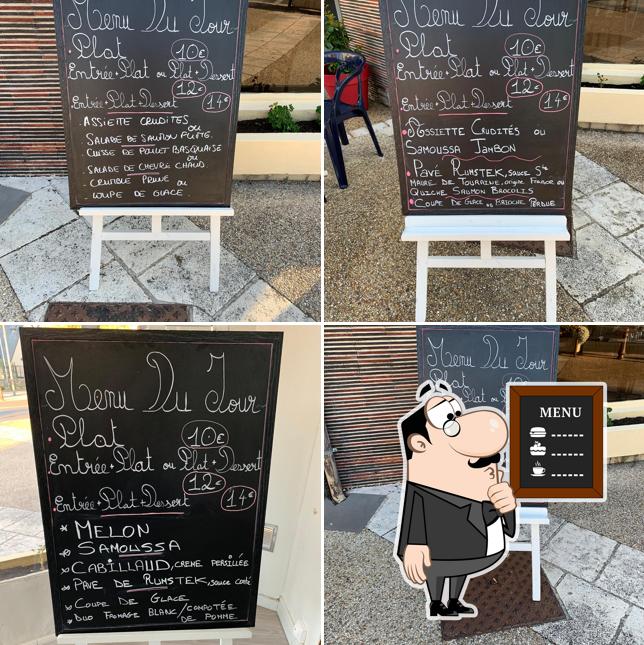 Menu Du Jour
Plat 10€
Entrée+Plat ou Plat+Dessert
12€
Entrée+Plat+Dessert 14€
ASSIETTE CRUDITES
ou
SALADE DE SAUMON FUMÉ.
CUISSE DE POULET BASQUAISE
ou
SALADE DE CHEVRE CHAUD
- CRUMBLE PRUNE ou
- COUPE DE GLACE
Menu Du Jour
Plat 10€
Entrée+Plat ou Plat+Dessert
12€
Entrée+Plat+Dessert 14€
ASSIETTE CRUDITÉS ou
SAMOUSSA JAMBON
PAVÉ RUMSTEK, SAUCE Ste
MAURE DE TOURAINE, origine France ou
QUICHE SAUMON BROCOLIS
COUPE DE GLACE ou BRIOCHE PERDUE
Menu Du Jour
Plat 10€
Entrée+Plat ou Plat+Dessert
12€
Entrée+Plat+Dessert 14€
MELON
SAMOUSSA
CABILLAUD, CREME PERSILLÉE
PAVE DE RUMSTEK, sauce
COUPE DE GLACE
DUO FROMAGE BLANC/COMPOTÉE
DE POMME
Menu Du Jour
Plat
MENU